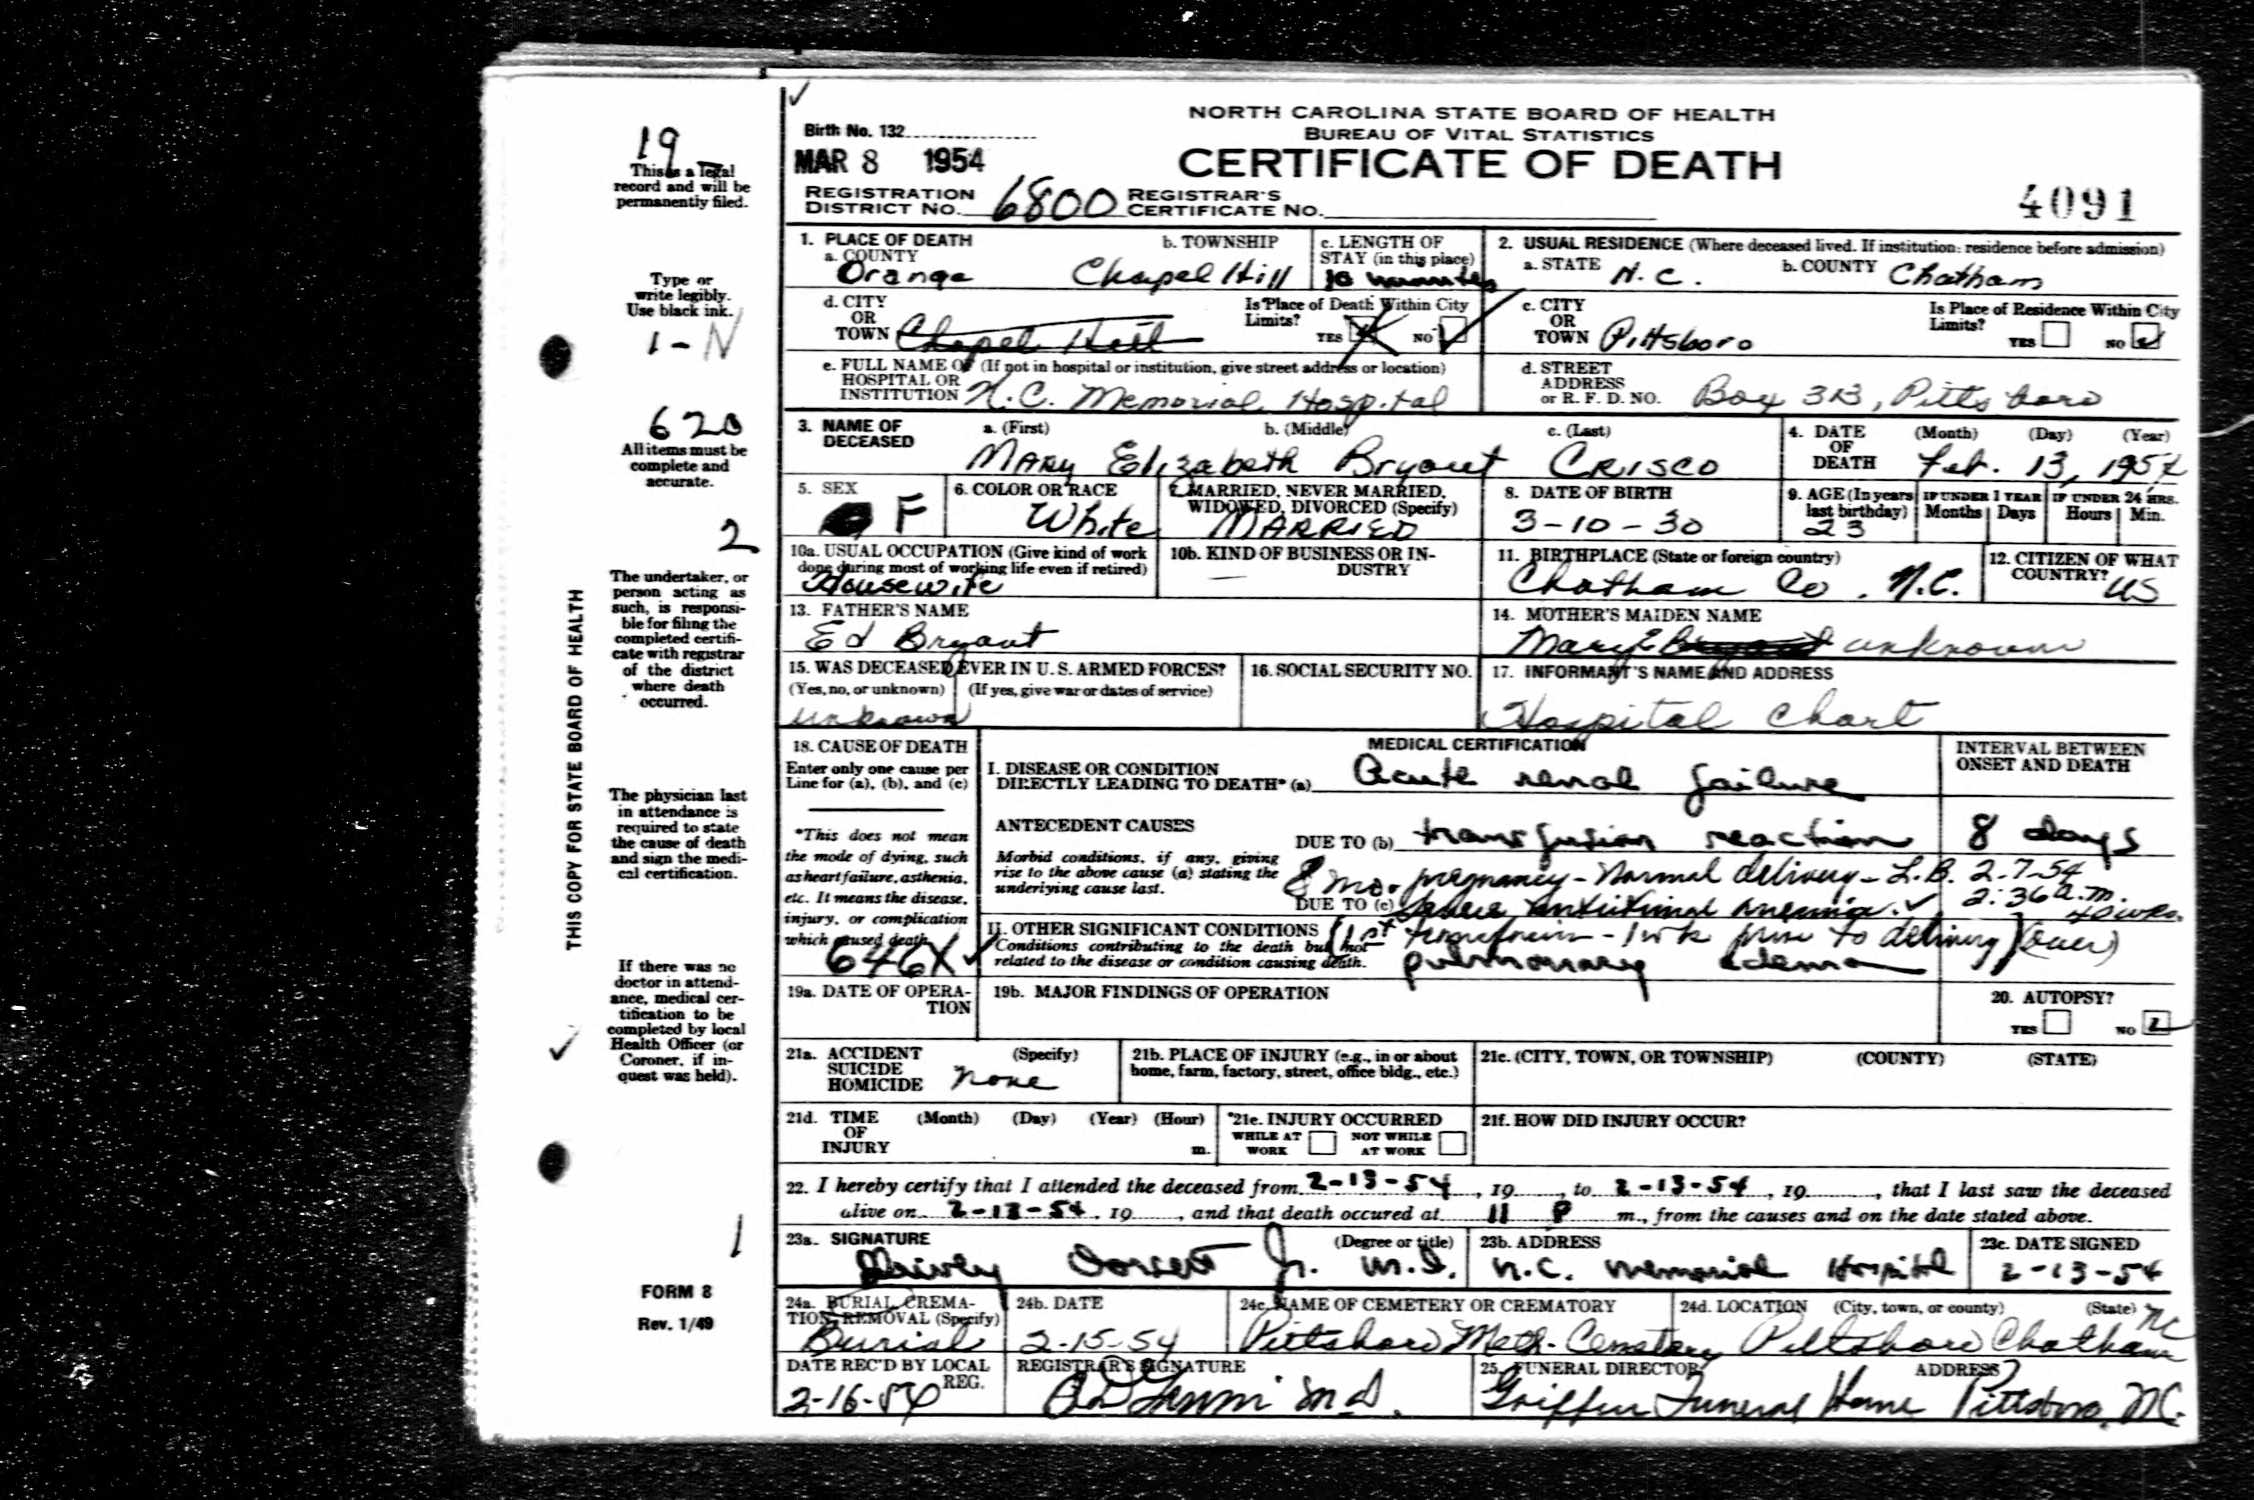 19
This is a legal
record and will be
permanently filed.
Type or
write legibly.
Use black ink.
1 - N
620
All items must be
complete and
accurate.
2
The undertaker, or
person acting as
such, is responsi-
ble for filing the
completed certifi-
cate with registrar
of the district
where death
occurred.
THIS COPY FOR STATE BOARD OF HEALTH
The physician last
in attendance is
required to state
the cause of death
and sign the medi-
cal certification.
If there was no
doctor in attend-
ance, medical cer-
tification to be
completed by local
Health Officer (or
Coroner, if in-
quest was held).
1
FORM 8
Rev. 1/49
NORTH CAROLINA STATE BOARD OF HEALTH
BUREAU OF VITAL STATISTICS
CERTIFICATE OF DEATH
Birth No. 132
MAR 8 1954
REGISTRATION DISTRICT NO. 6800 REGISTRAR'S CERTIFICATE NO.
4091
1. PLACE OF DEATH
a. COUNTY Orange
b. TOWNSHIP Chapel Hill
c. LENGTH OF STAY (in this place) 10 minutes
2. USUAL RESIDENCE (Where deceased lived. If institution: residence before admission)
a. STATE N.C. b. COUNTY Chatham
d. CITY OR TOWN Chapel Hill
Is Place of Death Within City Limits? YES NO
c. CITY OR TOWN Pittsboro
Is Place of Residence Within City Limits? YES NO
e. FULL NAME OF HOSPITAL OR INSTITUTION (If not in hospital or institution, give street address or location) N.C. Memorial Hospital
d. STREET ADDRESS or R. F. D. NO. Box 313, Pittsboro
3. NAME OF DECEASED a. (First) b. (Middle) c. (Last)
Mary Elizabeth Bryant CRISCO
4. DATE OF DEATH (Month) (Day) (Year)
Feb. 13, 1954
5. SEX F
6. COLOR OR RACE White
7. MARRIED, NEVER MARRIED, WIDOWED, DIVORCED (Specify) MARRIED
8. DATE OF BIRTH 3-10-30
9. AGE (In years last birthday) 23
IF UNDER 1 YEAR Months Days
IF UNDER 24 HRS. Hours Min.
10a. USUAL OCCUPATION (Give kind of work done during most of working life even if retired) Housewife
10b. KIND OF BUSINESS OR INDUSTRY —
11. BIRTHPLACE (State or foreign country) Chatham Co. N.C.
12. CITIZEN OF WHAT COUNTRY? US
13. FATHER'S NAME
Ed Bryant
14. MOTHER'S MAIDEN NAME
Mary E Bryant unknown
15. WAS DECEASED EVER IN U. S. ARMED FORCES?
(Yes, no, or unknown) (If yes, give war or dates of service)
unknown
16. SOCIAL SECURITY NO.
17. INFORMANT'S NAME AND ADDRESS
Hospital Chart
18. CAUSE OF DEATH
Enter only one cause per
Line for (a), (b), and (c)
*This does not mean
the mode of dying, such
as heart failure, asthenia,
etc. It means the disease,
injury, or complication
which caused death.
646X
MEDICAL CERTIFICATION
INTERVAL BETWEEN ONSET AND DEATH
I. DISEASE OR CONDITION
DIRECTLY LEADING TO DEATH* (a) Acute renal failure
ANTECEDENT CAUSES
Morbid conditions, if any, giving
rise to the above cause (a) stating the
underlying cause last.
DUE TO (b) transfusion reaction 8 days
8 mo. pregnancy - Normal delivery - L.B. 2-7-54
2:36 a.m.
DUE TO (c) Severe nutritional anemia. 40 wks.
II. OTHER SIGNIFICANT CONDITIONS
Conditions contributing to the death but not
related to the disease or condition causing death.
(1st transfusion - 1 wk prior to delivery) (over)
pulmonary edema
19a. DATE OF OPERATION
19b. MAJOR FINDINGS OF OPERATION
20. AUTOPSY?
YES NO
21a. ACCIDENT SUICIDE HOMICIDE (Specify) none
21b. PLACE OF INJURY (e.g., in or about home, farm, factory, street, office bldg., etc.)
21c. (CITY, TOWN, OR TOWNSHIP) (COUNTY) (STATE)
21d. TIME OF INJURY (Month) (Day) (Year) (Hour) m.
21e. INJURY OCCURRED
WHILE AT WORK NOT WHILE AT WORK
21f. HOW DID INJURY OCCUR?
22. I hereby certify that I attended the deceased from 2-13-54, 19, to 2-13-54, 19, that I last saw the deceased
alive on 2-13-54, 19, and that death occured at 11 P m., from the causes and on the date stated above.
23a. SIGNATURE (Degree or title)
Dorsett Jr. M.D.
23b. ADDRESS
N.C. Memorial Hospital
23c. DATE SIGNED
2-13-54
24a. BURIAL, CREMATION, REMOVAL (Specify)
Burial
24b. DATE
2-15-54
24c. NAME OF CEMETERY OR CREMATORY
Pittsboro Meth. Cemetery
24d. LOCATION (City, town, or county) (State)
Pittsboro Chatham NC
DATE REC'D BY LOCAL REG.
2-16-54
REGISTRAR'S SIGNATURE
25. FUNERAL DIRECTOR ADDRESS
Griffin Funeral Home Pittsboro, NC.